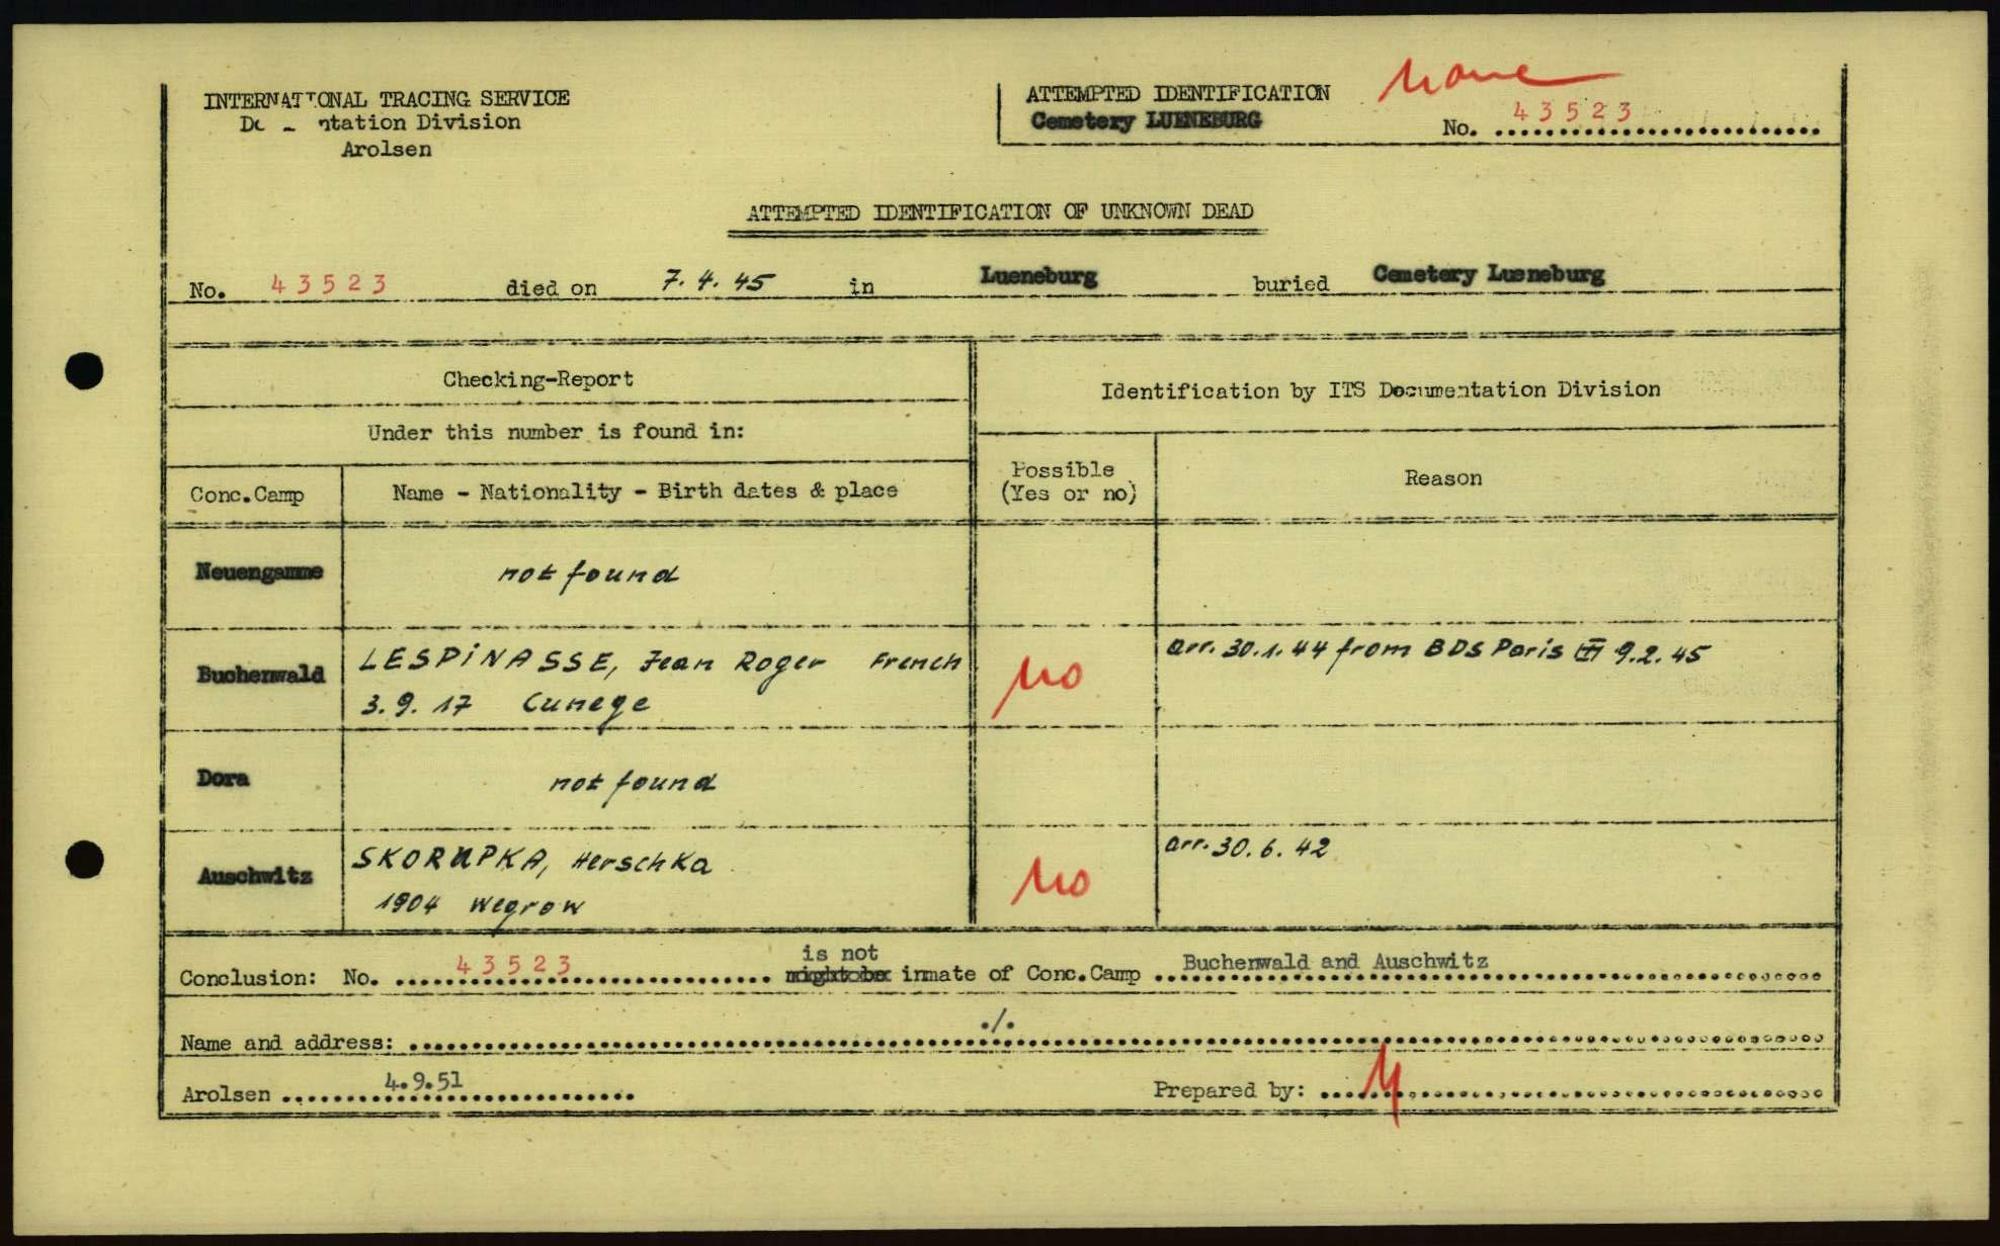 INTERNATIONAL TRACING SERVICE
Documentation Division
Arolsen
ATTEMPTED IDENTIFICATION
Cemetery LUENEBURG
none
No. 43523
ATTEMPTED IDENTIFICATION OF UNKNOWN DEAD
No. 43523 died on 7.4.45 in Lueneburg buried Cemetery Lueneburg
Checking-Report
Identification by ITS Documentation Division
Under this number is found in:
Conc.Camp
Name - Nationality - Birth dates & place
Possible
(Yes or no)
Reason
Neuengamme
not found
Buchenwald
LESPINASSE, Jean Roger French
3.9.17 Cunege
no
arr. 30.1.44 from BDS Paris 9.2.45
Dora
not found
Auschwitz
SKORUPKA, Herschka
1904 Wegrow
no
arr. 30.6.42
is not
Conclusion: No. 43523 might be inmate of Conc.Camp Buchenwald and Auschwitz
Name and address: ./.
Arolsen 4.9.51
Prepared by: